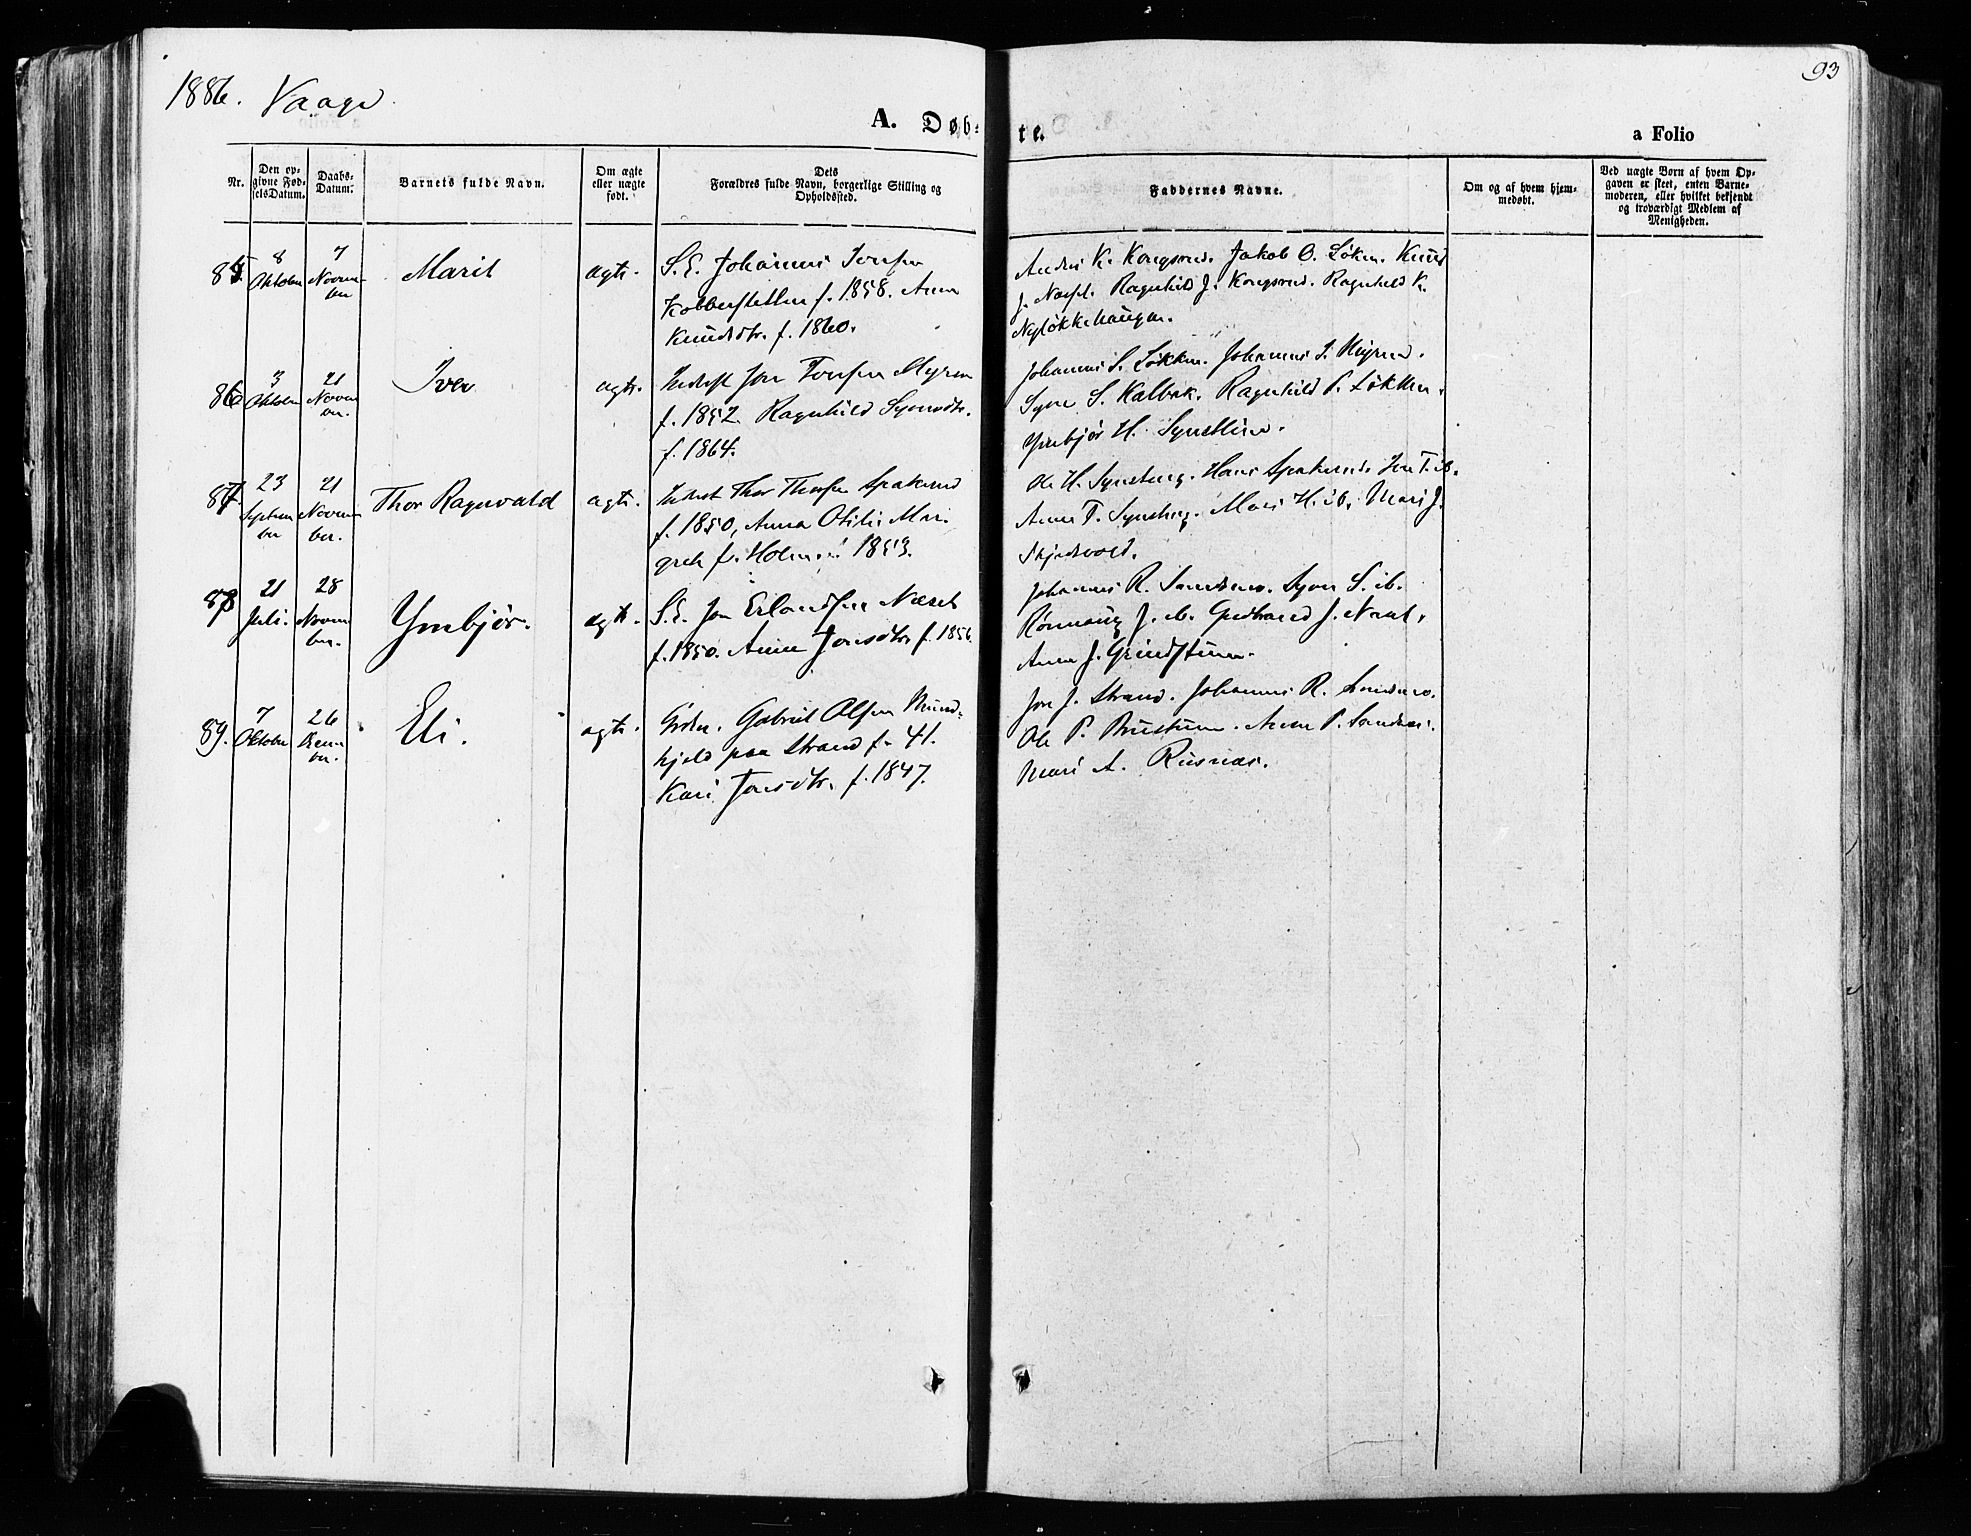 1886. Vaage
93
A. Døb-
te.
a Folio
Nr.
Den op-
givne Fød-
selsDatum.
Daabs-
Datum.
Barnets fulde Navn.
Om ægte
eller uægte
født.
Dets
Forældres fulde Navn, borgerlige Stilling og
Opholdssted.
Faddernes Navne.
Om og af hvem hjem-
medøbt.
Ved uægte Børn af hvem Op-
gaven er skeet, enten Barne-
moderen, eller hvilket bekjendt
og troværdigt Medlem af
Menigheden.
85.
8
Oktober
7
Novem-
ber
Marit
ægte.
S. E. Johannes Iversen
f. 1858. Anna
Knudsdtr. f. 1860.
Andris K. Kongsrud. Jakob O. Løken. Knud
J. Ragnhild J. Kongsrud. Ragnhild K.
Nyløkkehaugen.
86
3
Oktober
21
Novem
ber.
Iver
ægte.
Inderst Jon Iversen Myren
f. 1852. Ragnhild Syversdtr.
f. 1864.
Johannes S. Løkken. Johannes I.
Syver S. Kalbak. Ragnhild P. Løkken.
Ymbjør H.
87
23
Septem
ber
21
Novem
ber.
Thor Ragnvald
ægte.
Inderst Thor Thorsen
f. 1850, Anna Otilie Mar-
grete f. Holm 1853.
Ole H. Synsteng. Hans T. ib.
Anne T. Synsteng. Mari H. ib. Mari J.
Skjedsvold.
88
21
Juli.
28
Novem
ber.
Ymbjør.
ægte.
S. E. Jon Erlandsen Næset
f. 1850. Anne Jonsdtr. f. 1856.
Johannes R. Sandsnes. Syver S. ib.
Rønnaug J. ib. Gudbrand J.
Anne J. Grindstuen.
89.
7
Oktober
26
Decem
ber.
Eli.
ægte.
Gabriel Olsen Mund-
hjeld paa Strand f. 41.
Kari Jonsdtr. f. 1847.
Jon J. Strand. Johannes R. Sandsnes.
Ole P. Anne P. Sandnes.
Mari A. Rusnæs.